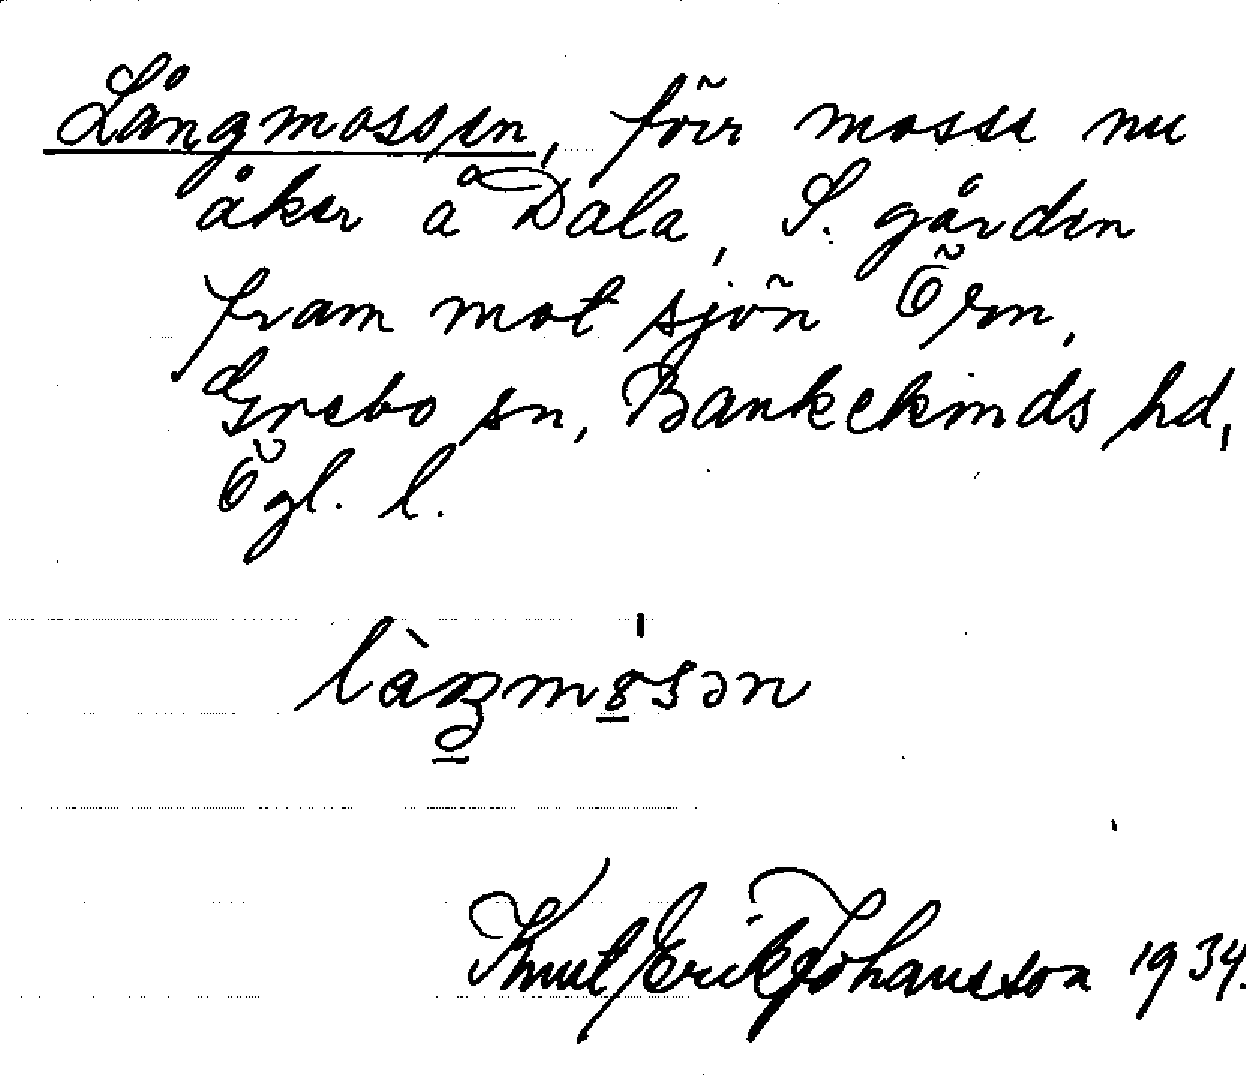 Långmossen, förr mosse nu
åker å Dala, S. gården
fram mot sjön Örn,
Grebo sn, Bankekinds hd,
Ögl. l.
Knut Erik Johansson 1934.